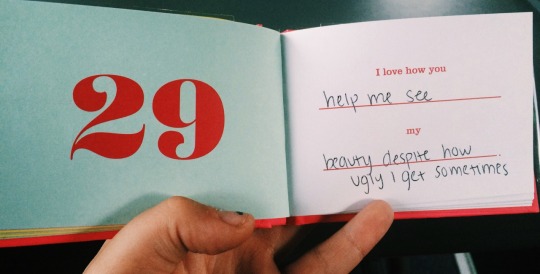 29
I love how you
help me see
my
beauty despite how
ugly I get sometimes